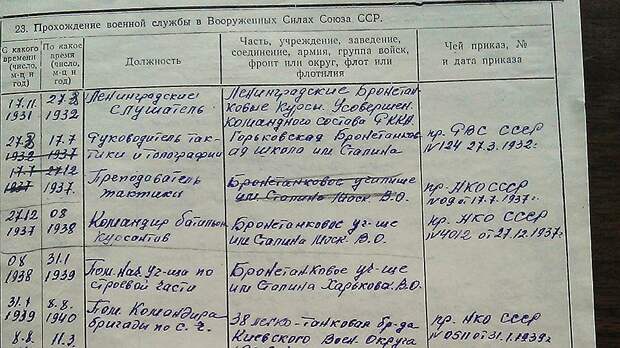 23. Прохождение военной службы в Вооруженных Силах Союза ССР.
С какого времени (число, м-ц и год)
По какое время (число, м-ц и год)
Должность
Часть, учреждение, заведение, соединение, армия, группа войск, фронт или округ, флот или флотилия
Чей приказ, № и дата приказа
17.11. 27.3 Ленинградские Ленинградские Бронетан-
1931 1932 слушатель ковые Курсы. Усовершен.
Командного состава РККА.
27.3 17.7 Руководитель так- Горьковская Бронетанков пр. РВС СССР
1932 1937 тики и топографии ая школа им Сталина №124 27.3.1932г.
17.7 27.12 Преподаватель Бронетанковое училище пр. НКО СССР
1937 1937. тактики им Сталина Моск. В.О. №09 от 17.7.1937г.
27.12 08 Командир батальон Бронетанковое уч-ще пр. НКО СССР
1937 1938 курсантов им Сталина Моск. В.О. №4012 от 27.12.1937г.
08 31.1 Пом. Нач. Уч-ща по Бронетанковое уч-ще
1938 1939 строевой части им Сталина Харькова. В.О.
31.1 8.8. Пом. Командира
1939 1940 бригады по с.ч. 38 легко-танковая бр-да пр. НКО СССР
8.8. 11.3 Киевского Воен. Округа №0511 от 31.1.1939г